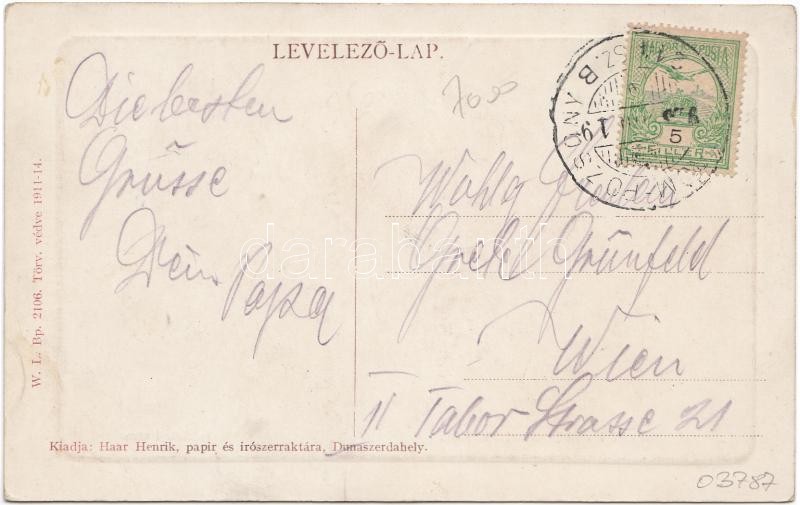 LEVELEZŐ-LAP.
7000
Die besten
Grüsse
Dein Papa
MAGYAR KIR. POSTA
5
FILLÉR
Wohlg
Grete Grünfeld
Wien
II Tabor Strasse 21
W. L. Bp. 2106. Törv. védve 1911-14.
Kiadja: Haar Henrik, papir és irószerraktára, Dunaszerdahely.
darabanth
03787